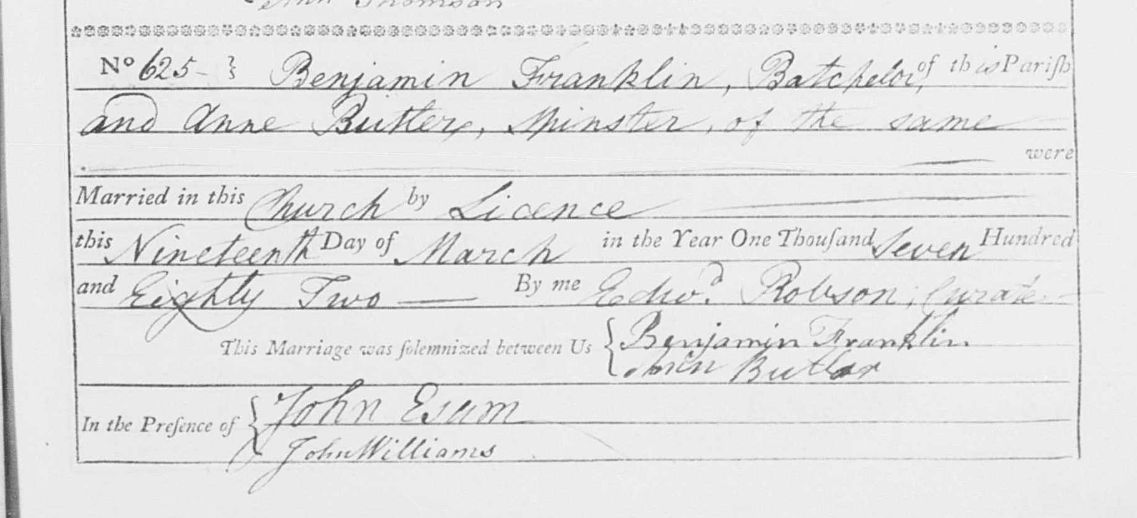 John Thomson
No 625 - } Benjamin Franklin, Batchelor, of this Pariſh
and Anne Butler, Spinster, of the same
were
Married in this Church by Licence
this Nineteenth Day of March in the Year One Thouſand Seven Hundred
and Eighty Two — By me Edwd. Robson, Curate
This Marriage was ſolemnized between Us { Benjamin Franklin
Butler
In the Preſence of { John Esam
John Williams